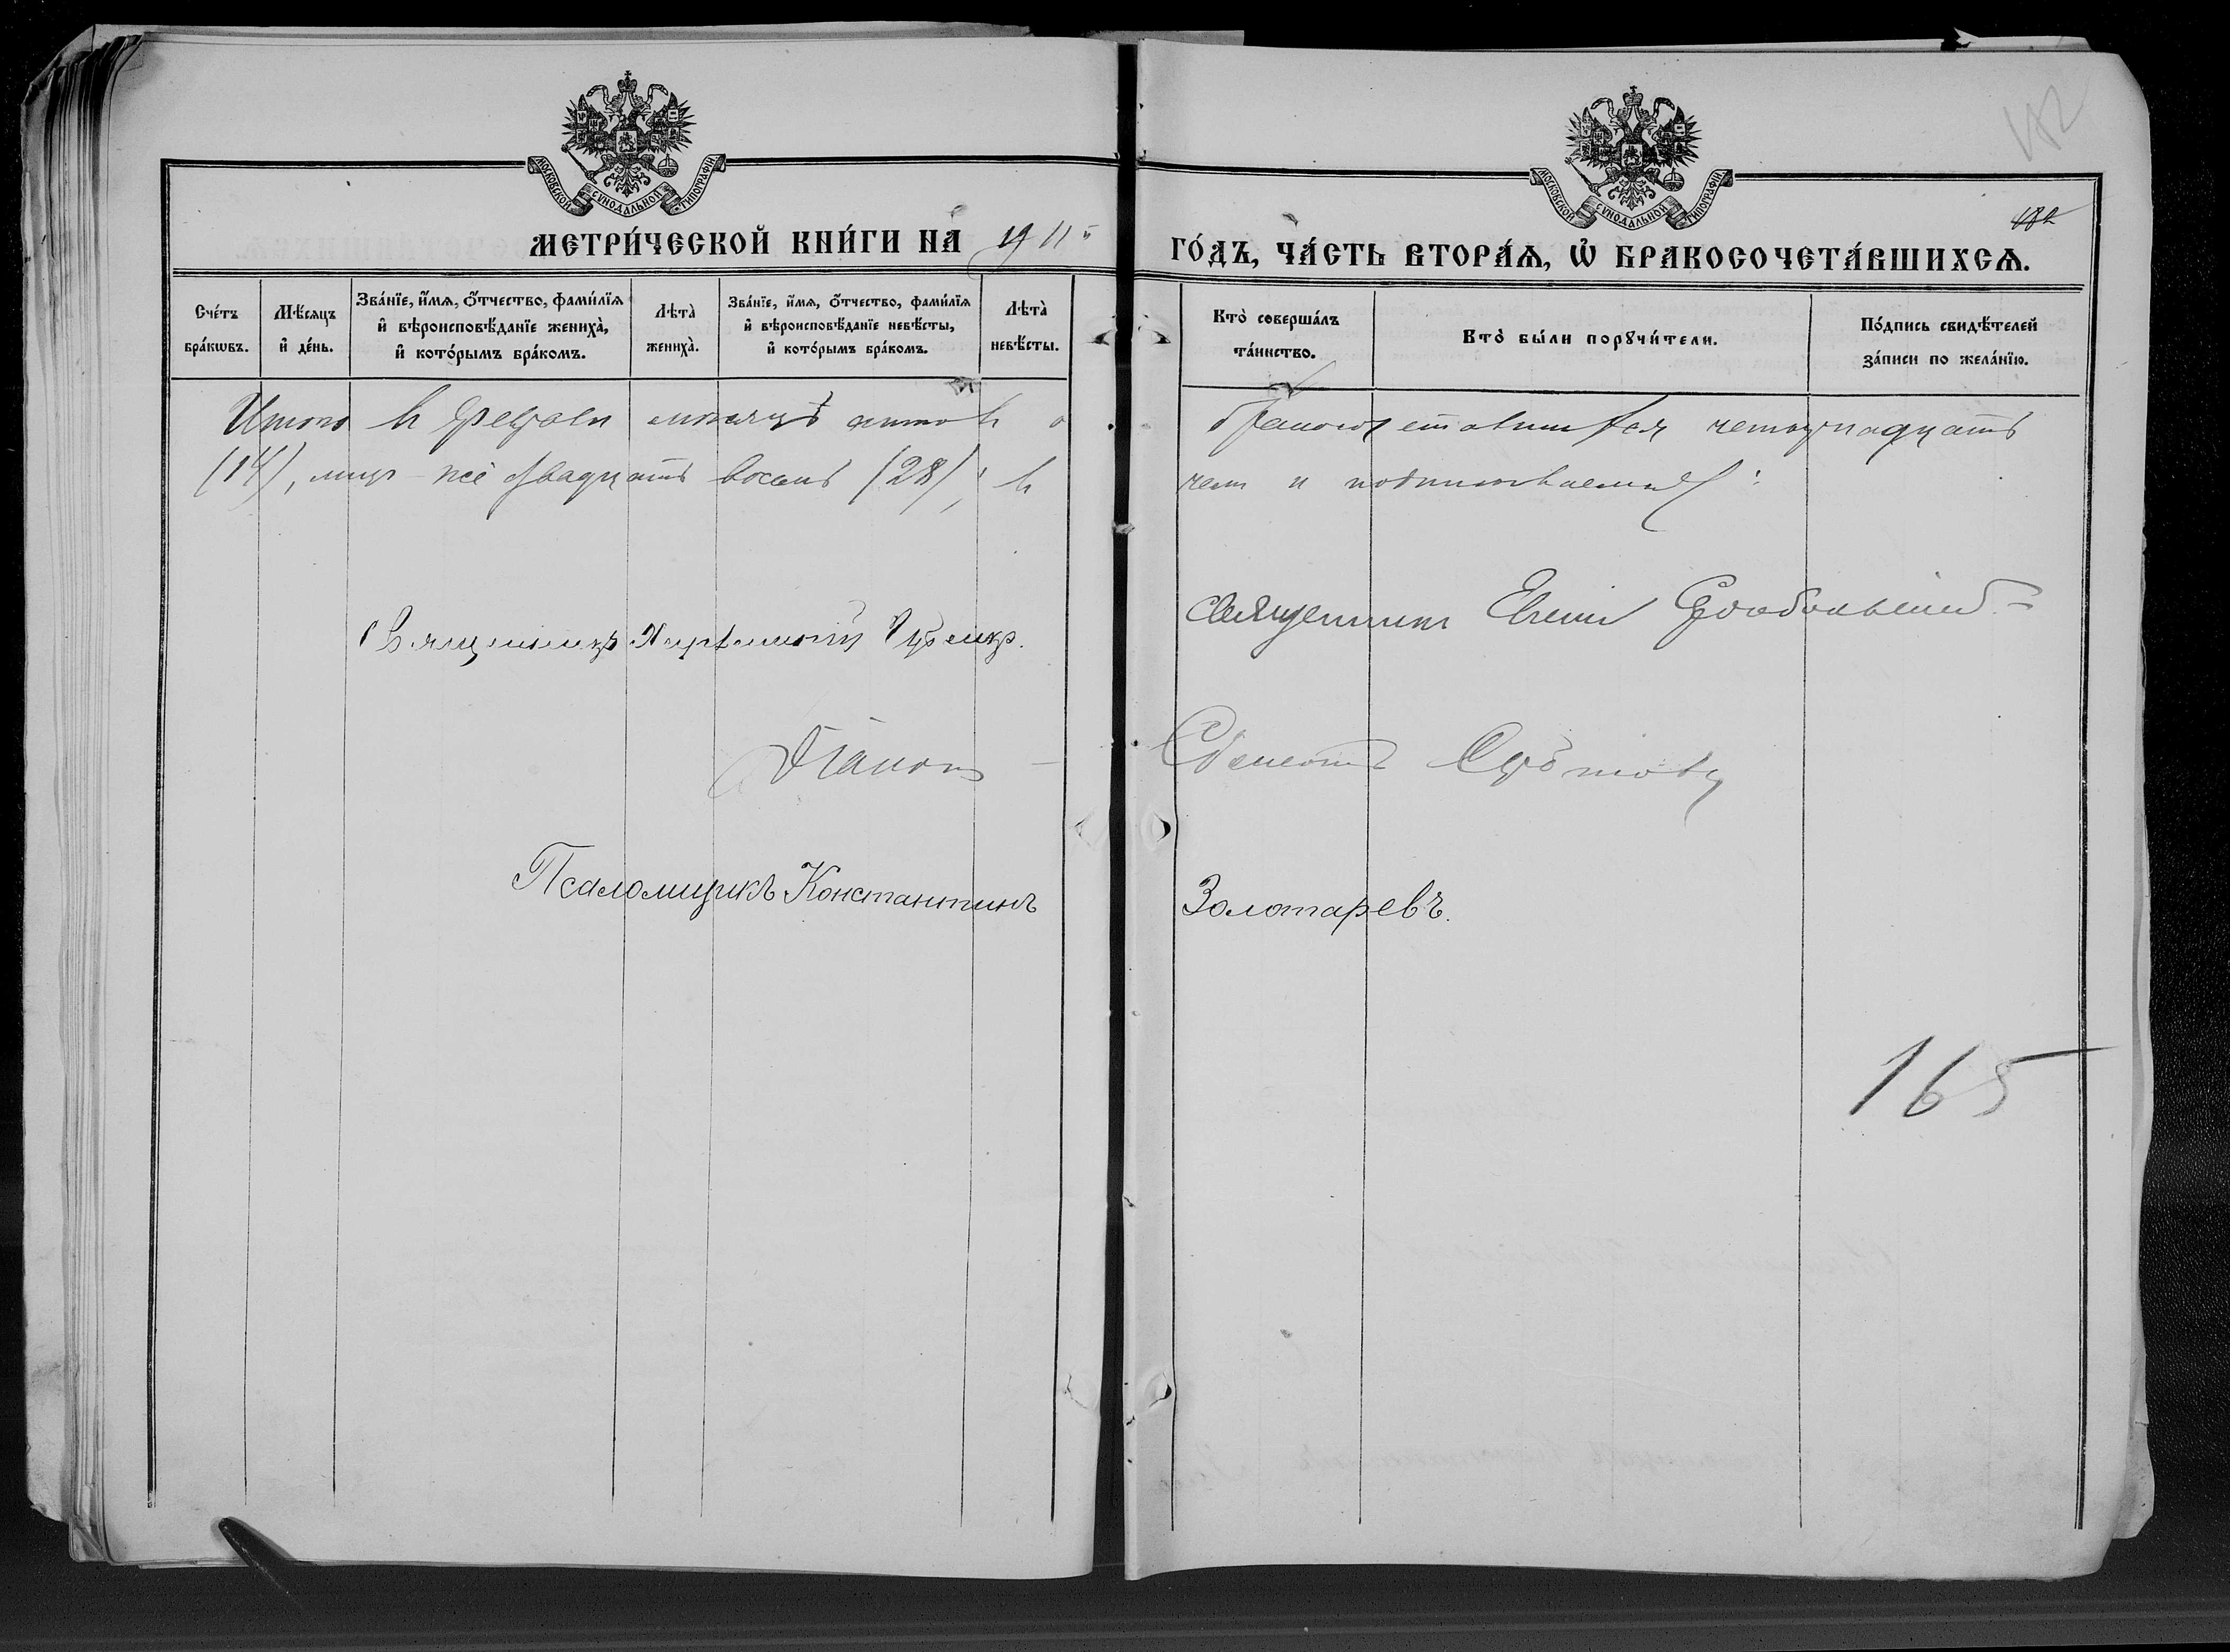 МОСКОВСКОЙ СѴНОДАЛЬНОЙ ТИПОГРАФІИ
МОСКОВСКОЙ СѴНОДАЛЬНОЙ ТИПОГРАФІИ
182
МЕТРИ́ЧЕСКОЙ КНИ́ГИ НА 1911 ГО́ДЪ, ЧА́СТЬ ВТОРА́Ѧ, Ѽ БРАКОСОЧЕТА́ВШИХСѦ.
Сче́тъ
бра́кѡвъ.
Мѣ́сяцъ
и҆ де́нь.
Зва́нїе, и҆́мѧ, о҆́тчество, фами́лїѧ
и҆ вѣроисповѣ́данїе жениха̀,
и҆ кото́рымъ бра́комъ.
Лѣта̀
жениха̀.
Зва́нїе, и҆́мѧ, о҆́тчество, фами́лїѧ
и҆ вѣроисповѣ́данїе невѣ́сты,
и҆ кото́рымъ бра́комъ.
Лѣта̀
невѣ́сты.
Кто̀ соверша́лъ
та́инство.
Кто̀ бы́ли порꙋчи́тели.
По́дпись свидѣ́телей
за́писи по жела́нїю.
Итого въ феврале месяцѣ бракосочетавшихся четырнадцать
(14), лицъ двадцать восемь (28), въ чем и подписываемся:
Священникъ
Священникъ Евгеній
Діаконъ
Псаломщикъ Константинъ Золотаревъ.
165